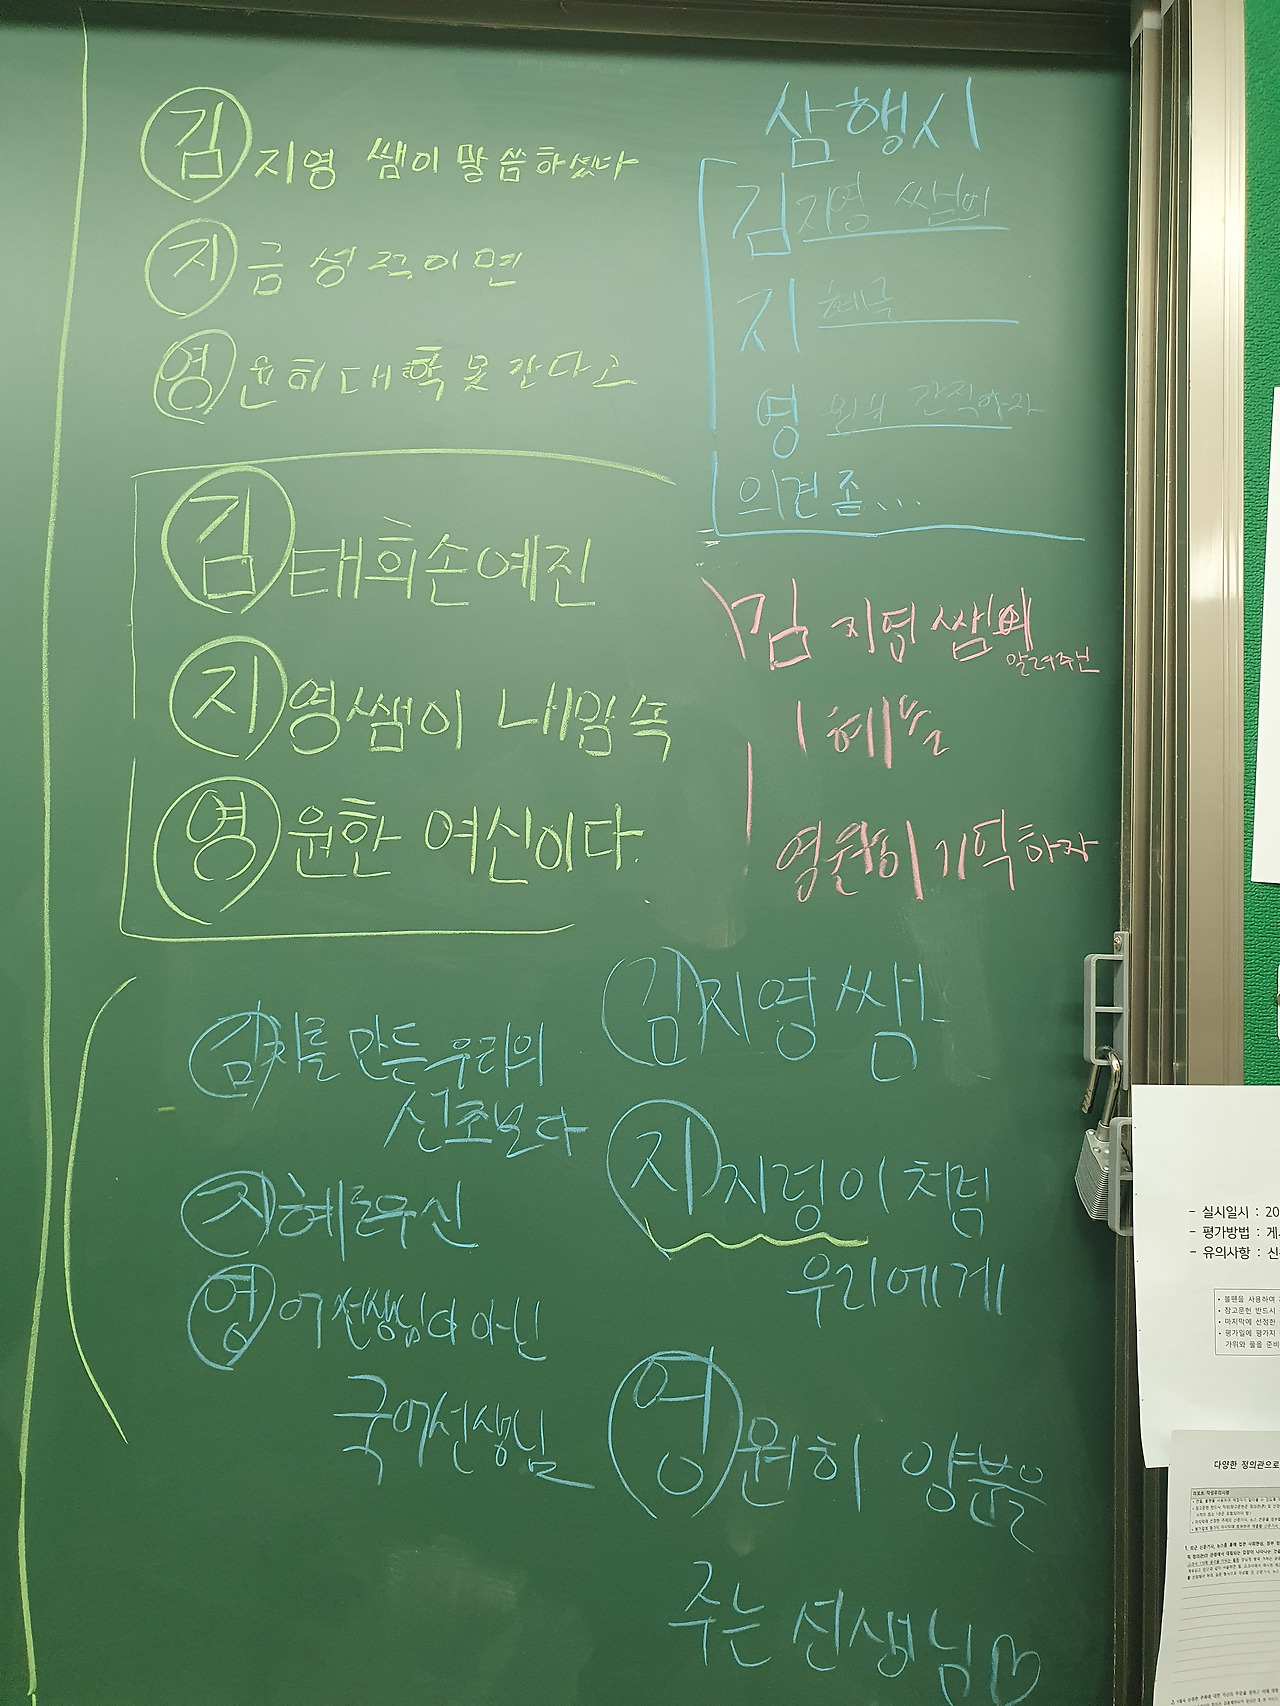 김지영 쌤이 말씀하셨다
지금 성적이면
영원히 대학 못 간다고
김태희손예진
지영쌤이 내맘속
영원한 여신이다.
김치를 만든 우리의
선조보다
지혜로우신
영어선생님이 아닌
국어선생님
삼행시
김지영 쌤의
지혜를
영원히 간직하자
의견 좀...
김지영쌤이
알려주신
영원히 기억하자
김지영쌤
지지렁이처럼
우리에게
영원히 양분을
주는 선생님♡
- 실시일시 : 20
- 평가방법 : 게
- 유의사항 : 신
• 볼펜을 사용하여
• 참고문헌 반드시
• 마지막에 선정한
• 평가일에 평가지
가위와 풀을 준비
다양한 정의관으로